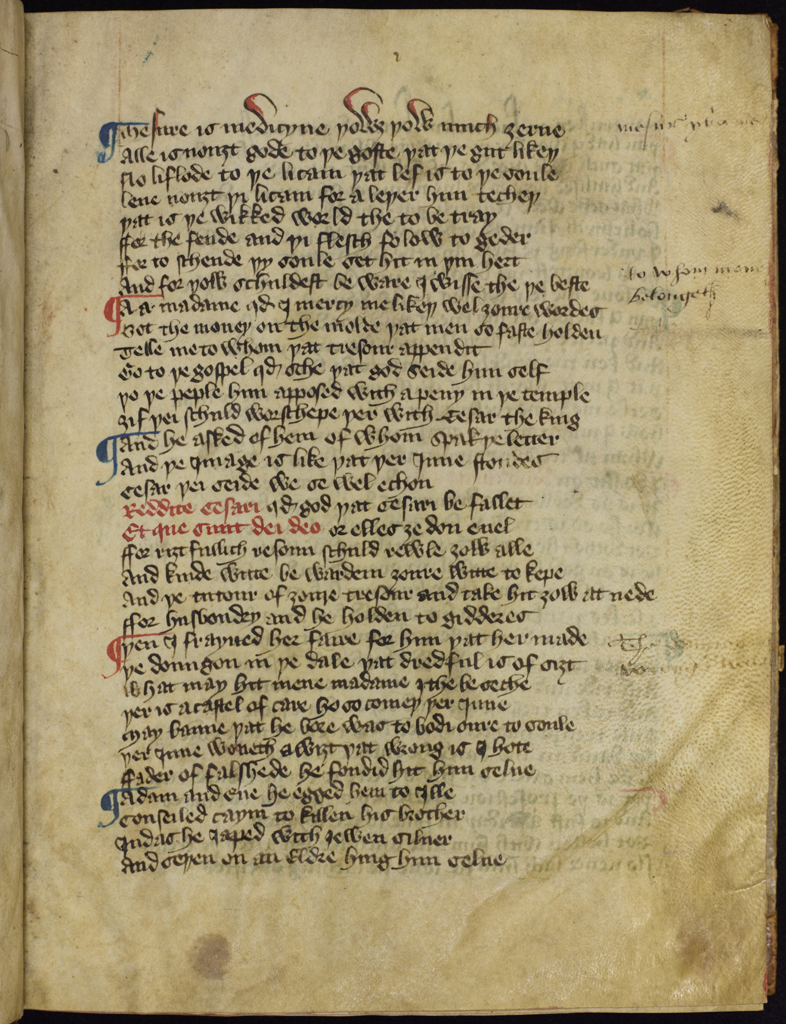 Mesure is medicyne yowz yow much zerne
Alle is nouzt gode to ye goste yat ye gut likey
No liflode to ye licam yat lef is to ye soule
Leue nouzt yi licam for a leyer him techey
yat is ye wikked world the to be tray
ffor the fende and yi flesch folow to geder
ffor to schende yy soule set hit in yin hert
And for yow schuldest be ware I wisse the ye beste
A a madame qd I mercy me likey wel zoure wordes
Bot the money on the molde yat men so faste holden
Telle me to whom yat tresour appendit
Go to ye gospel qd sche yat god seide him self
yo ye peple him apposed with a peny in ye temple
zif yei schuld worschepe yer with Cesar the king
And he asked of hem of whom spak ye letter
And ye Image is like yat yer Inne stondes
Cesar yei seide we se wel echon
Reddite Cesari qd god yat Cesari be fallet
Et que sunt dei deo or elles ze don euel
ffor rizt fullich resoun schuld rewle zow alle
And kinde witte be wardein zoure witte to kepe
And ye tutour of zoure tresour and take hit zow at nede
ffor husbondry and he holden to gidderes
yen I frayned her faire for him yat her made
ye doungon in ye dale yat dredful is of sizt
What may hit mene madame I the be seche
yer is a castel of care ho so comey yer Inne
May banne yat he bore was to bodi oure to soule
yer Inne woneth a wizt yat wrong is I hote
ffader of falshede he fondid hit him selue
Adam and Eue he egged hem to Ille
Conseiled caym to killen his brother
Iudas he Iaped with Iewen siluer
And seyen on an Eldre hing him selue
to whom mony
belongeth